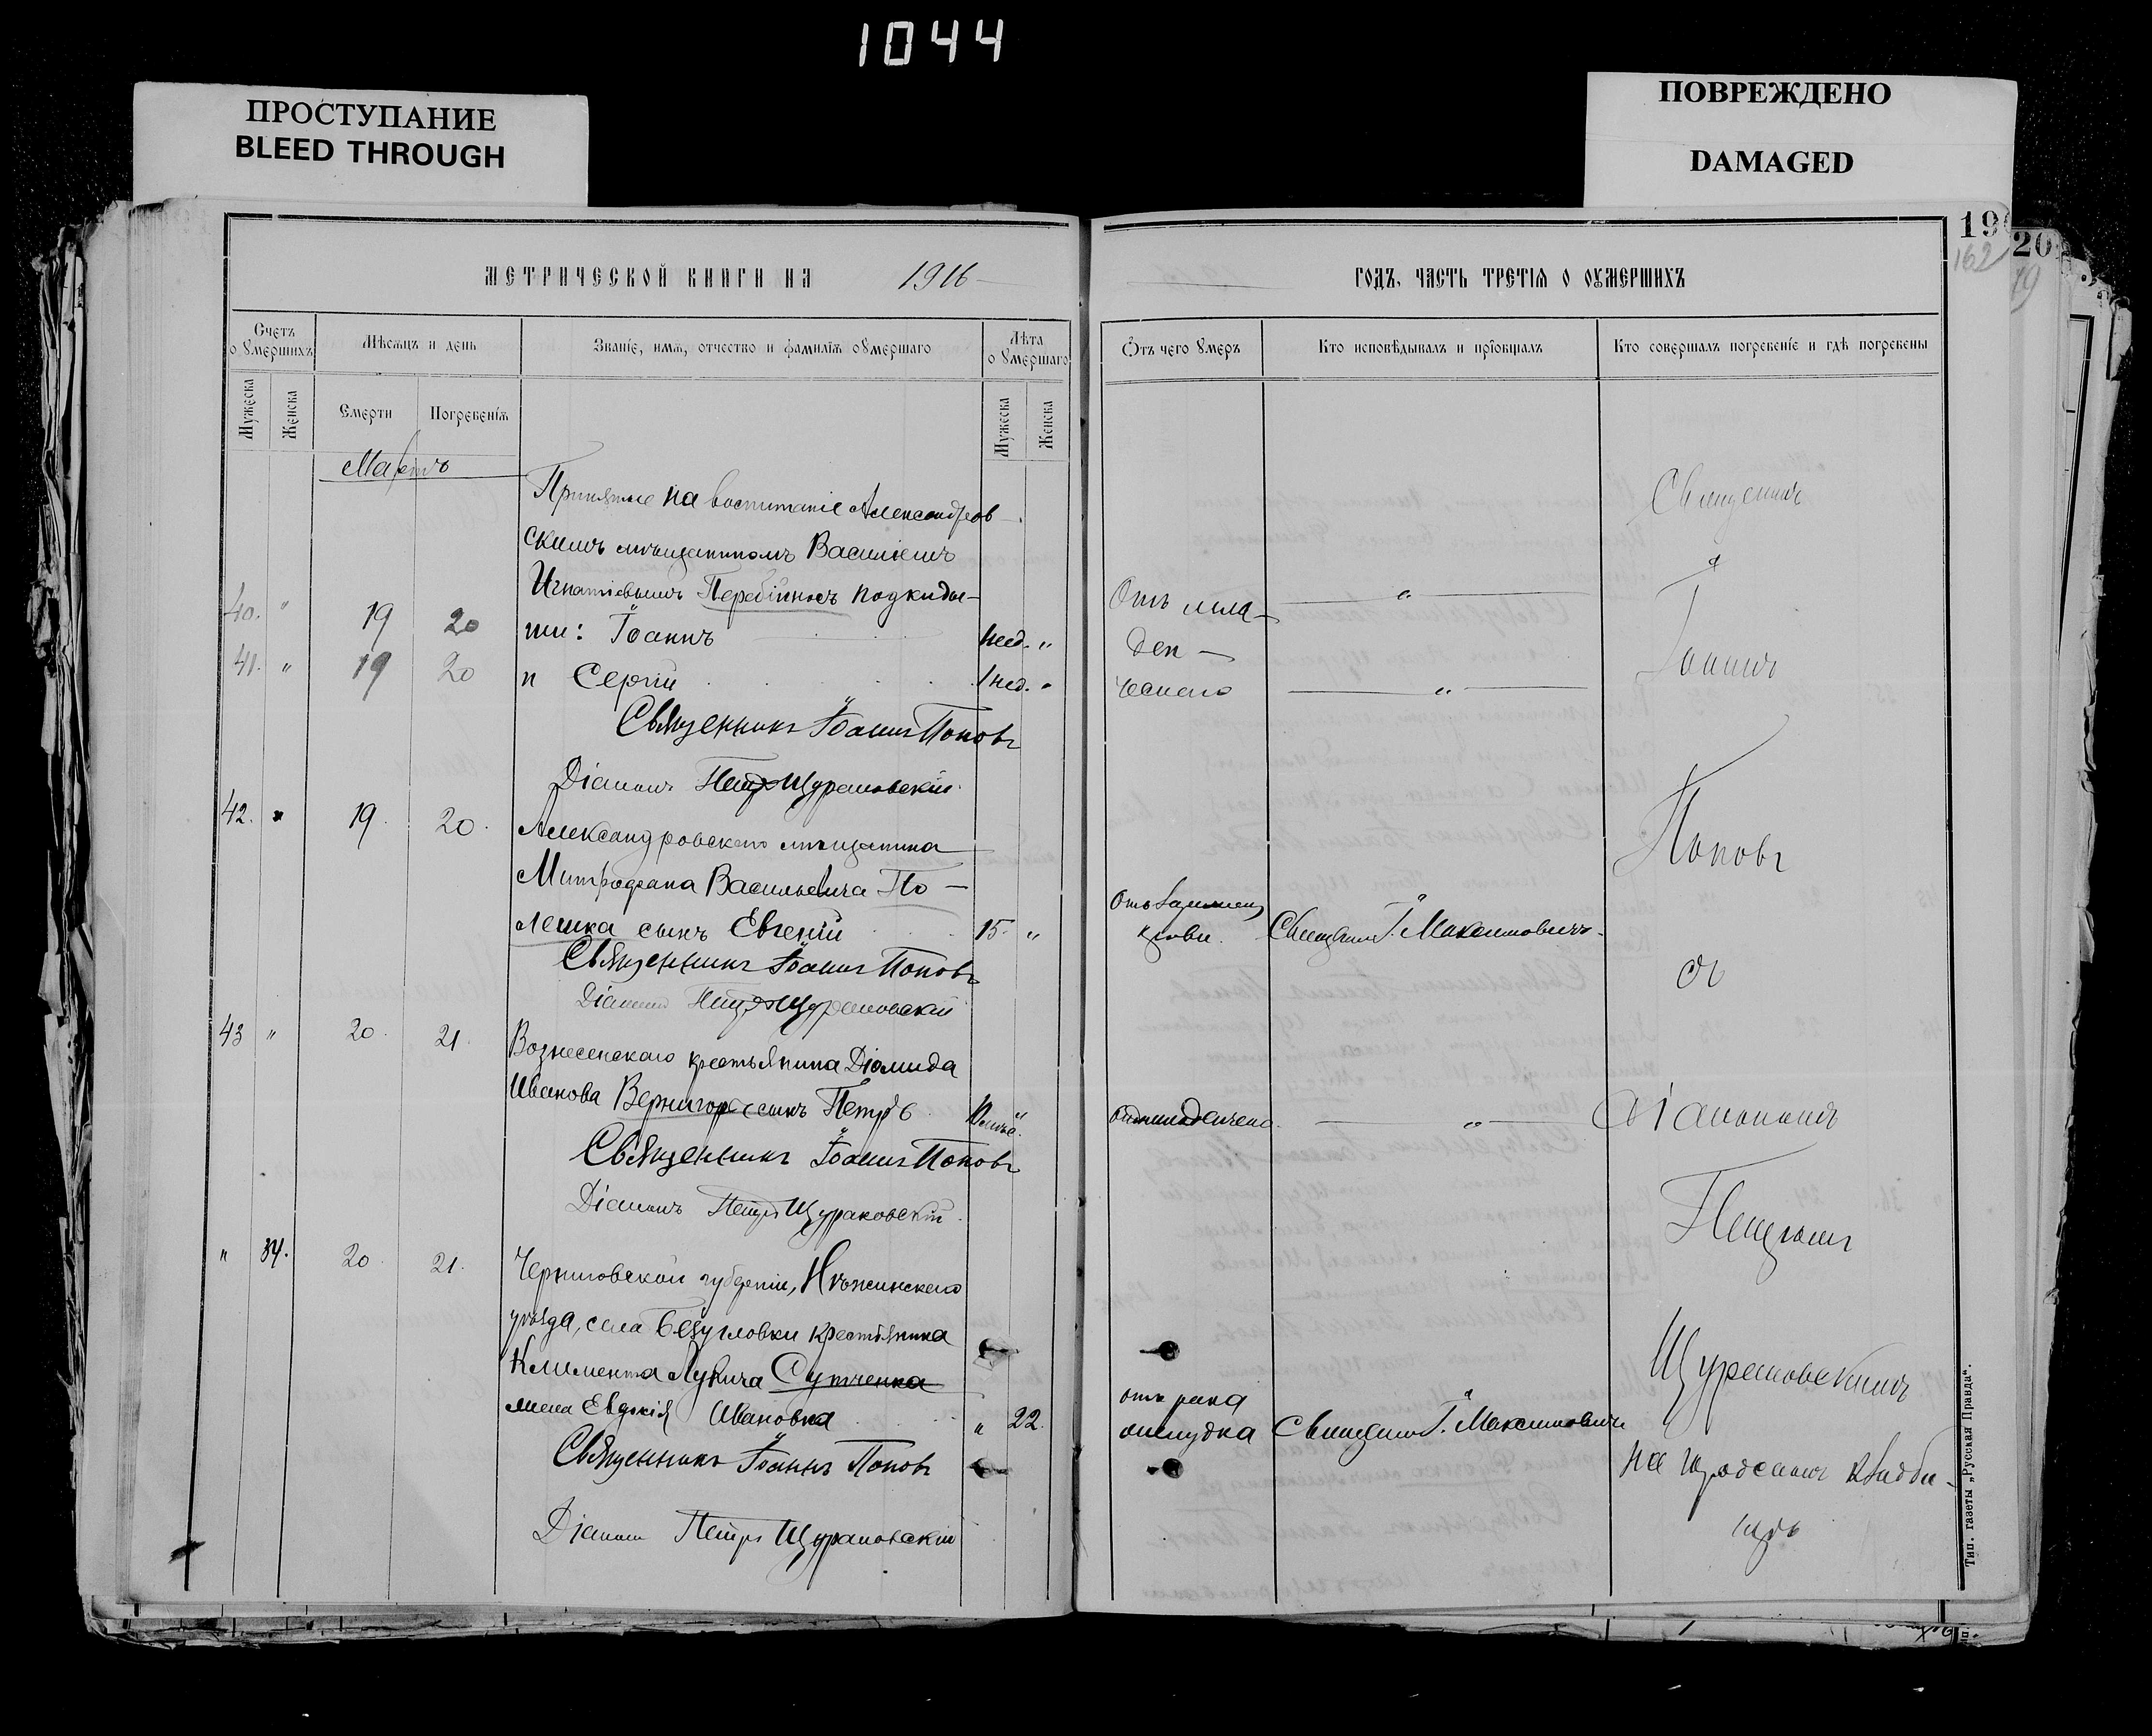 1044
ПРОСТУПАНИЕ
BLEED THROUGH
ПОВРЕЖДЕНО
DAMAGED
19
162
20
19
МЕТРИЧЕСКОЙ КНИГИ НА 1916
ГОДЪ, ЧАСТЬ ТРЕТІЯ О ОУМЕРШИХЪ
Счетъ оумершихъ
Мѣсяцъ и день
Званіе, имя, отчество и фамилія оумершаго
Лѣта оумершаго
Отъ чего умеръ
Кто исповѣдывалъ и пріобщалъ
Кто совершалъ погребеніе и гдѣ погребены
Мужеска
Женска
Смерти
Погребенія
Мужеска
Женска
Мартъ
Принятые на воспитаніе Александров-
скимъ мѣщаниномъ Василіемъ
Игнатіевымъ Перебійносъ подкиды-
40. " 19 20 ши: Іоаннъ нед. "
41. " 19 20 и Сергій 1 нед. "
Священникъ Іоаннъ Поповъ
Діаконъ Петръ Щураковскій
42. " 19. 20. Александровскаго мѣщанина
Митрофана Васильевича По-
лешка сынъ Евгеній 15. "
Священникъ Іоаннъ Поповъ
Діаконъ Петръ Щураковскій
43 " 20. 21. Вознесенскаго крестьянина Діомида
Иванова Вернигора сынъ Петръ
Священникъ Іоаннъ Поповъ
Діаконъ Петръ Щураковскій
" 34. 20. 21. Черниговской губерніи, Нѣжинскаго
уѣзда, села Безугловки крестьянина
Климента Лукича Сутченка
жена Евдокія Ивановна " 22.
Священникъ Іоаннъ Поповъ
Діаконъ Петръ Щураковскій
Отъ мла-
ден-
ческаго
"
"
Отъ
крови.
Священникъ І. Максимовичъ.
"
отъ рака
желудка
Священникъ І. Максимовичъ
Священникъ
Іоаннъ
Поповъ
съ
діакономъ
Петромъ
Щураковскимъ
на городскомъ кладби-
щѣ
Тип. газеты „Русская Правда".